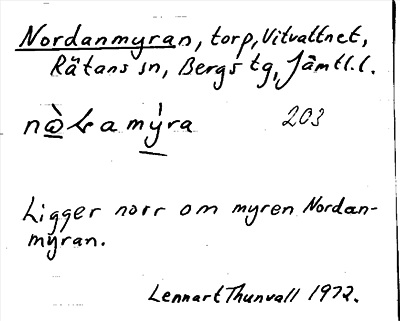 Nordanmyran, torp, Vitvattnet,
Rätans sn, Bergs tg, Jämtl.l.
203
Ligger norr om myren Nordan-
myran.
Lennart Thunvall 1972.